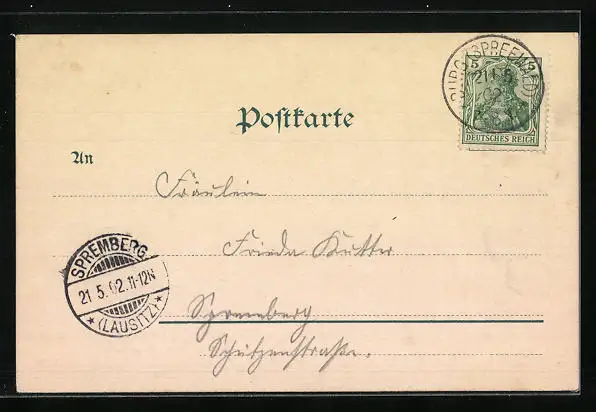 BURG (SPREEWALD)
21 5
02
5
DEUTSCHES REICH
Postkarte
An
Fräulein
Frieda Kutter
SPREMBERG
21 5. 02. 11-12N
* (LAUSITZ) *
Spremberg
Schützenstraße.